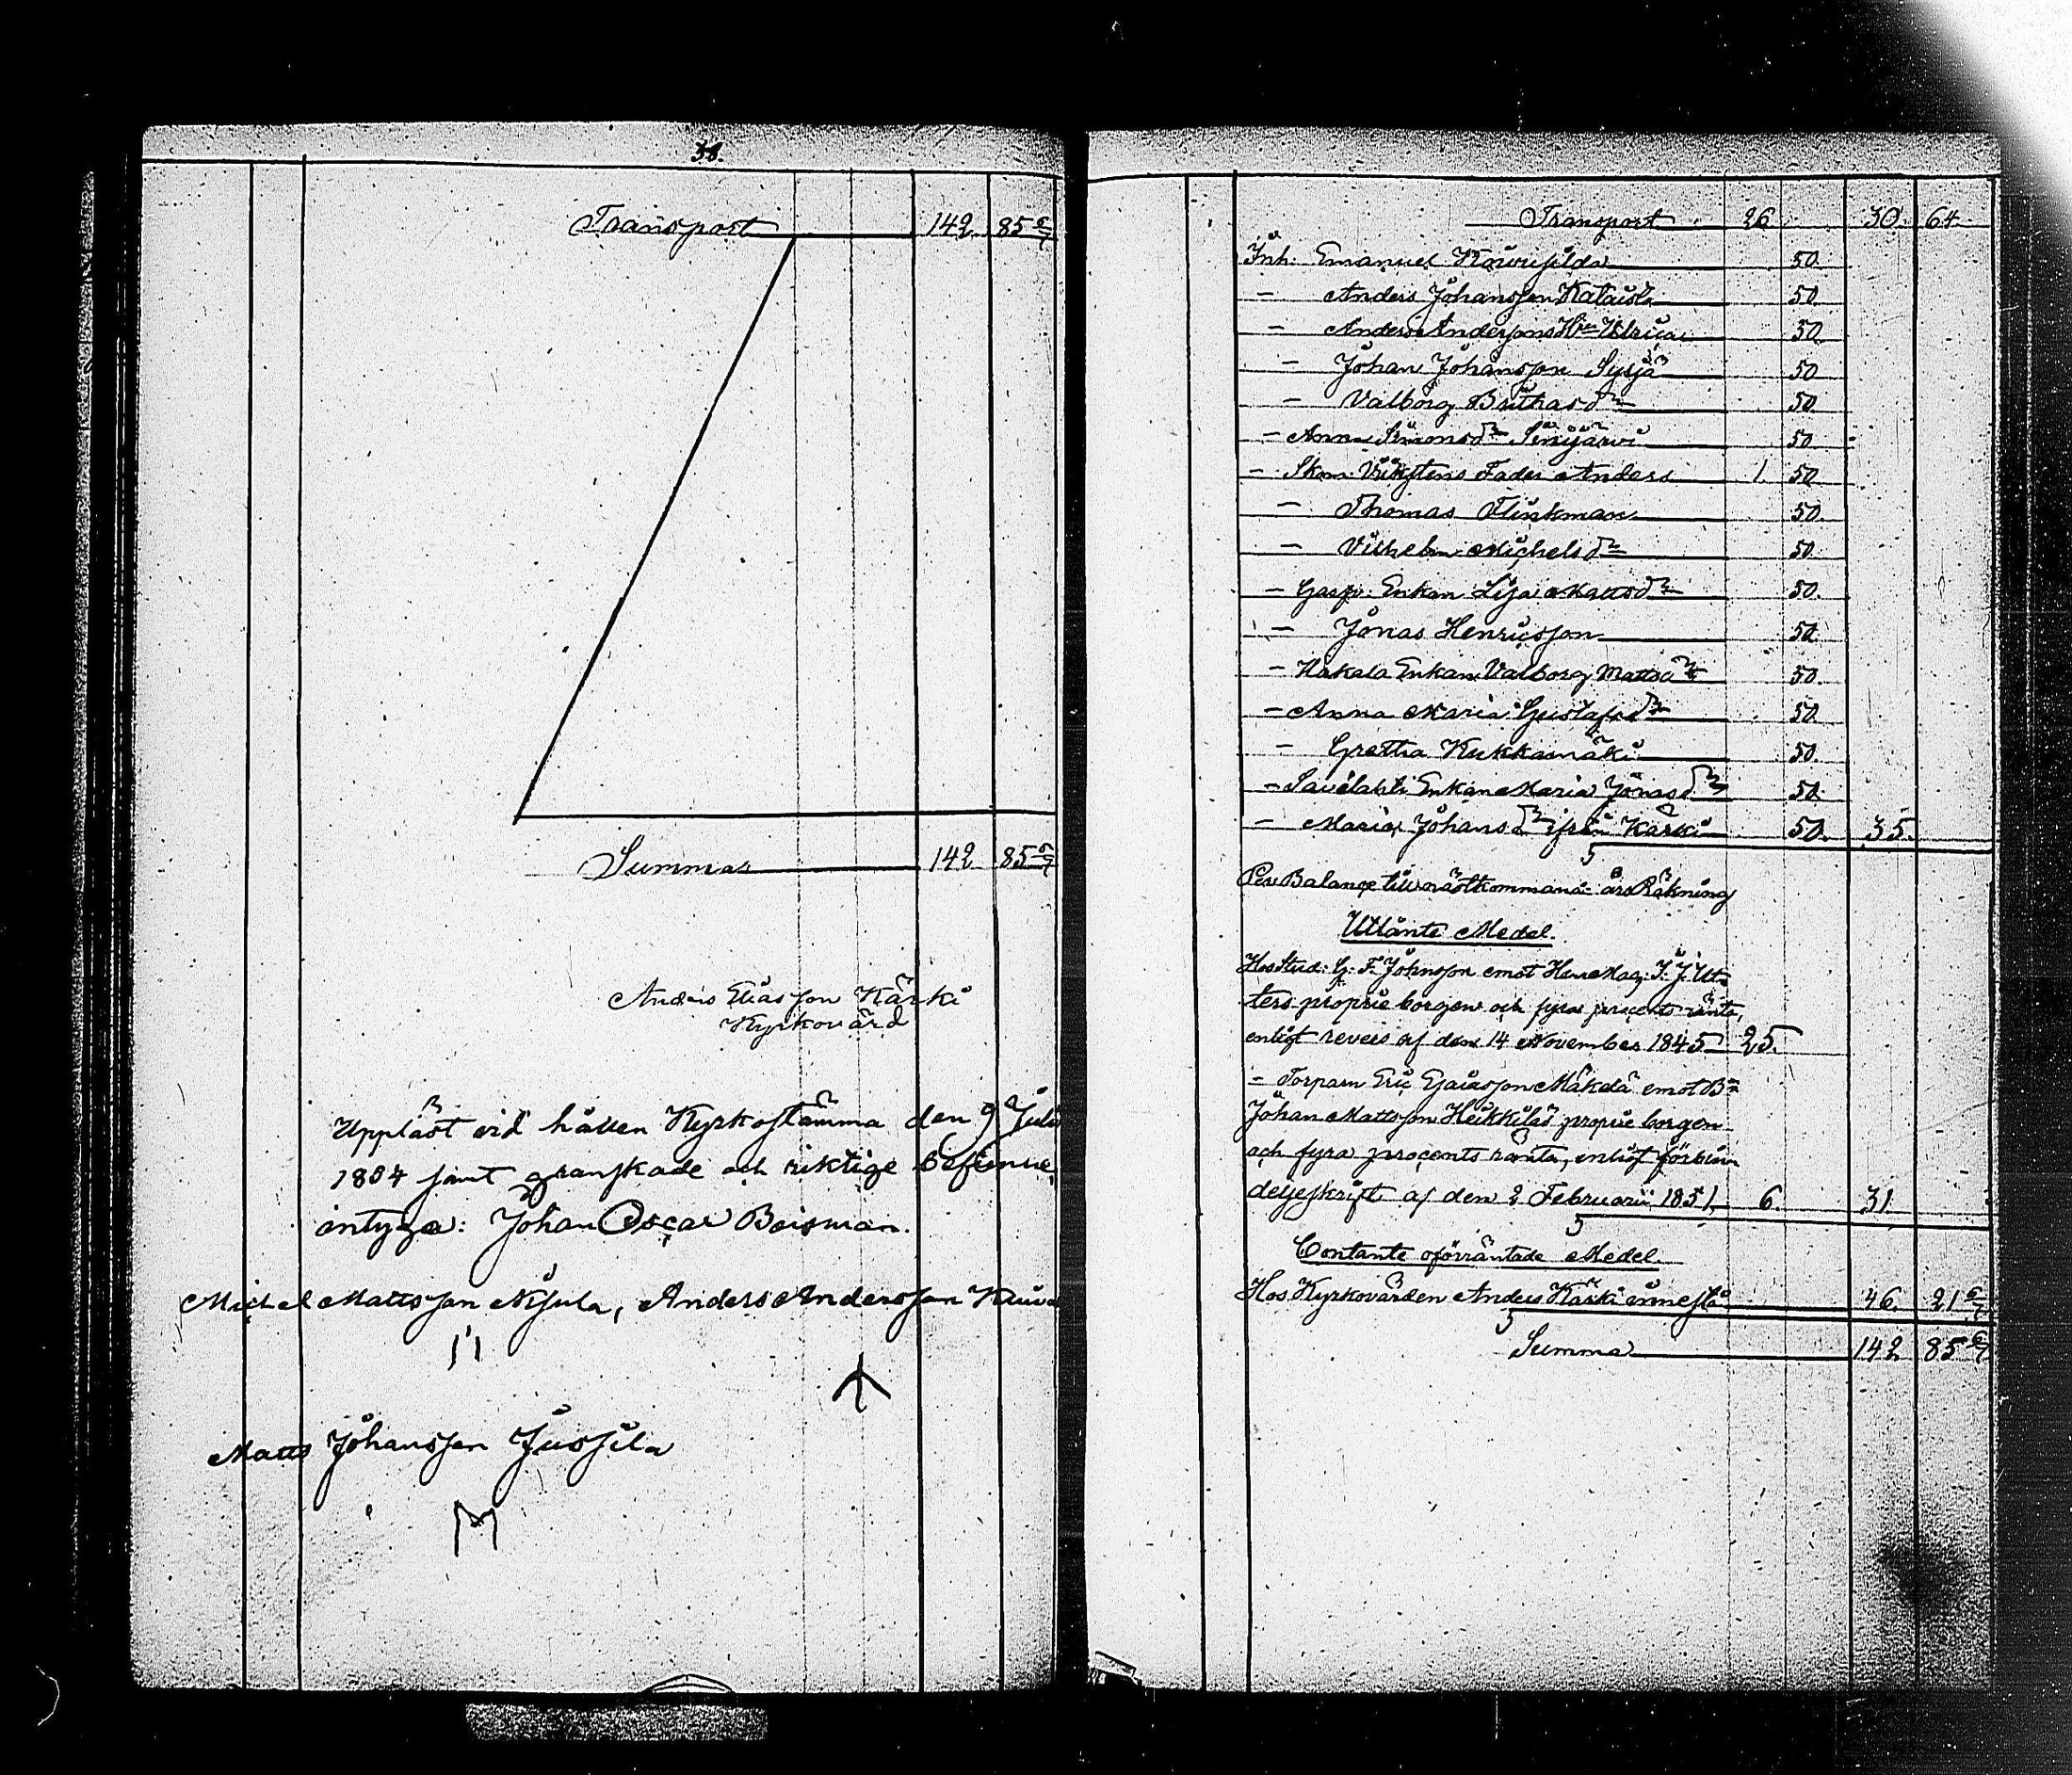 38.
Transport 142 85 6/7
Summa 142 85 6/7
Anders Eliasson Kärki
Kyrkovärd
Uppläst vid hållen Kyrkostämma den 9 Juli
1854 samt granskade och riktige befunne,
intyga: Johan Oscar Boisman.
Michel Mattsson Nisula, Anders Andersson
Matts Johansson Jussila
M
Transport 26 30 64
Inh: Emanuel 50
– Anders Johansson 50
– Anders Anderssons Ulrica 50
– Johan Johansson Sysjä 50
– Valborg Brithasdr 50
– Anna Simonsdr Sinijärvi 50
– Skom. Vikstens Fader Anders 1 50
– Thomas Flinkman 50
– Vilhelm Michelsdr 50
– Enkan Lisa Mattsdr 50
– Jonas Henricsson 50
– Hakala Enkan Valborg Mattsdr 50
– Anna Maria Gustafsdr 50
– Gretha Kukkamäki 50
– Savilahti Enkan Maria Jonasdr 50
– Maria Johansdr ifrån Kärki 50 35
Per Balance till nästkommande års Räkning
Utlånte Medel.
Hos Stud: G. F. Johnsson emot Herr Mag: I. J. Ut-
ters proprie borgen och fyra procents ränta,
enligt revers af den 14 November 1845 25.
– Torparn Eric Esaiasson Mäkelä emot Bn
Johan Mattsson Heikkiläs proprie borgen
och fyra procents ränta, enligt förbin
delseskrift af den 2 Februarii 1851 6. 31
Contante oförräntade Medel.
Hos Kyrkovärden Anders Kärki innestå 46. 21 6/7
Summa 142 85 6/7